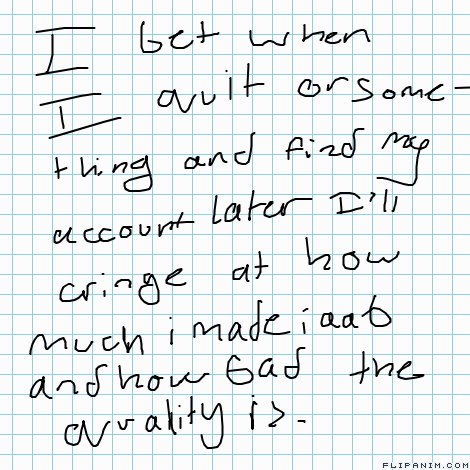 I bet when
I quit orsome-
thing and find my
account later I'll
cringe at how
much i made i aab
and how bad the
quality is.
FLIPANIM.COM